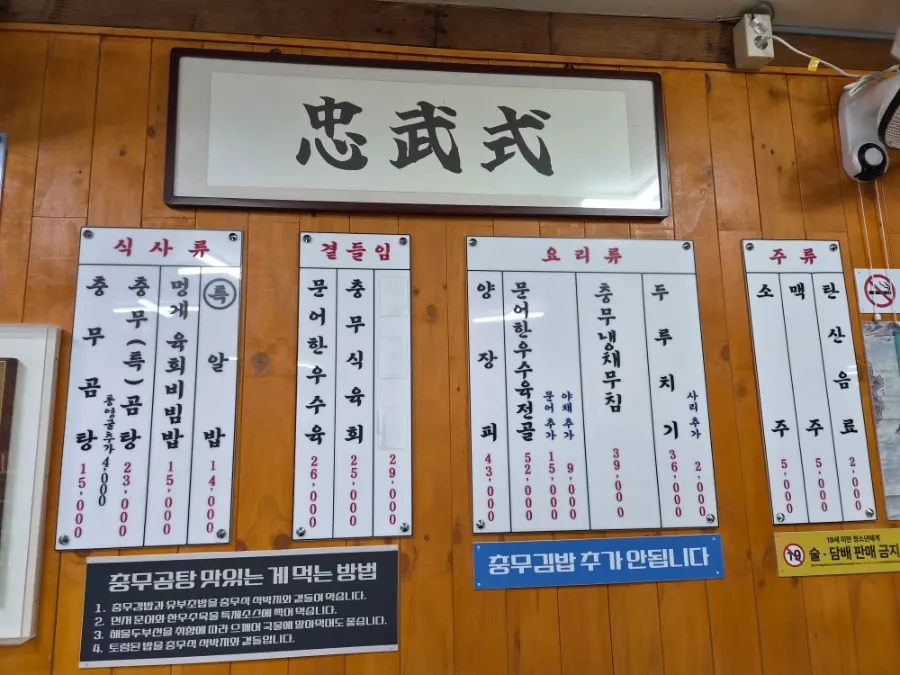 忠武式
식사류
충무곰탕 15,000
통영굴추가 4,000
충무(특)곰탕 23,000
멍게육회비빔밥 15,000
특 알밥 14,000
곁들임
문어한우수육 26,000
충무식육회 25,000
29,000
요리류
양장피 43,000
문어한우수육전골 52,000
문어 추가 15,000
야채 추가 9,000
충무냉채무침 39,000
두루치기 36,000
사리 추가 2,000
주류
소주 5,000
맥주 5,000
탄산음료 2,000
충무곰탕 맛있는 게 먹는 방법
1. 충무김밥과 유부초밥을 충무식 석박지와 곁들여 먹습니다.
2. 먼저 문어와 한우수육을 특제소스에 찍어 먹습니다.
3. 해물두부선을 취향에 따라 으깨어 국물에 말아먹어도 좋습니다.
4. 토렴된 밥을 충무식 석박지와 곁들입니다.
충무김밥 추가 안됩니다
19세 미만 청소년에게
19 술·담배 판매 금지